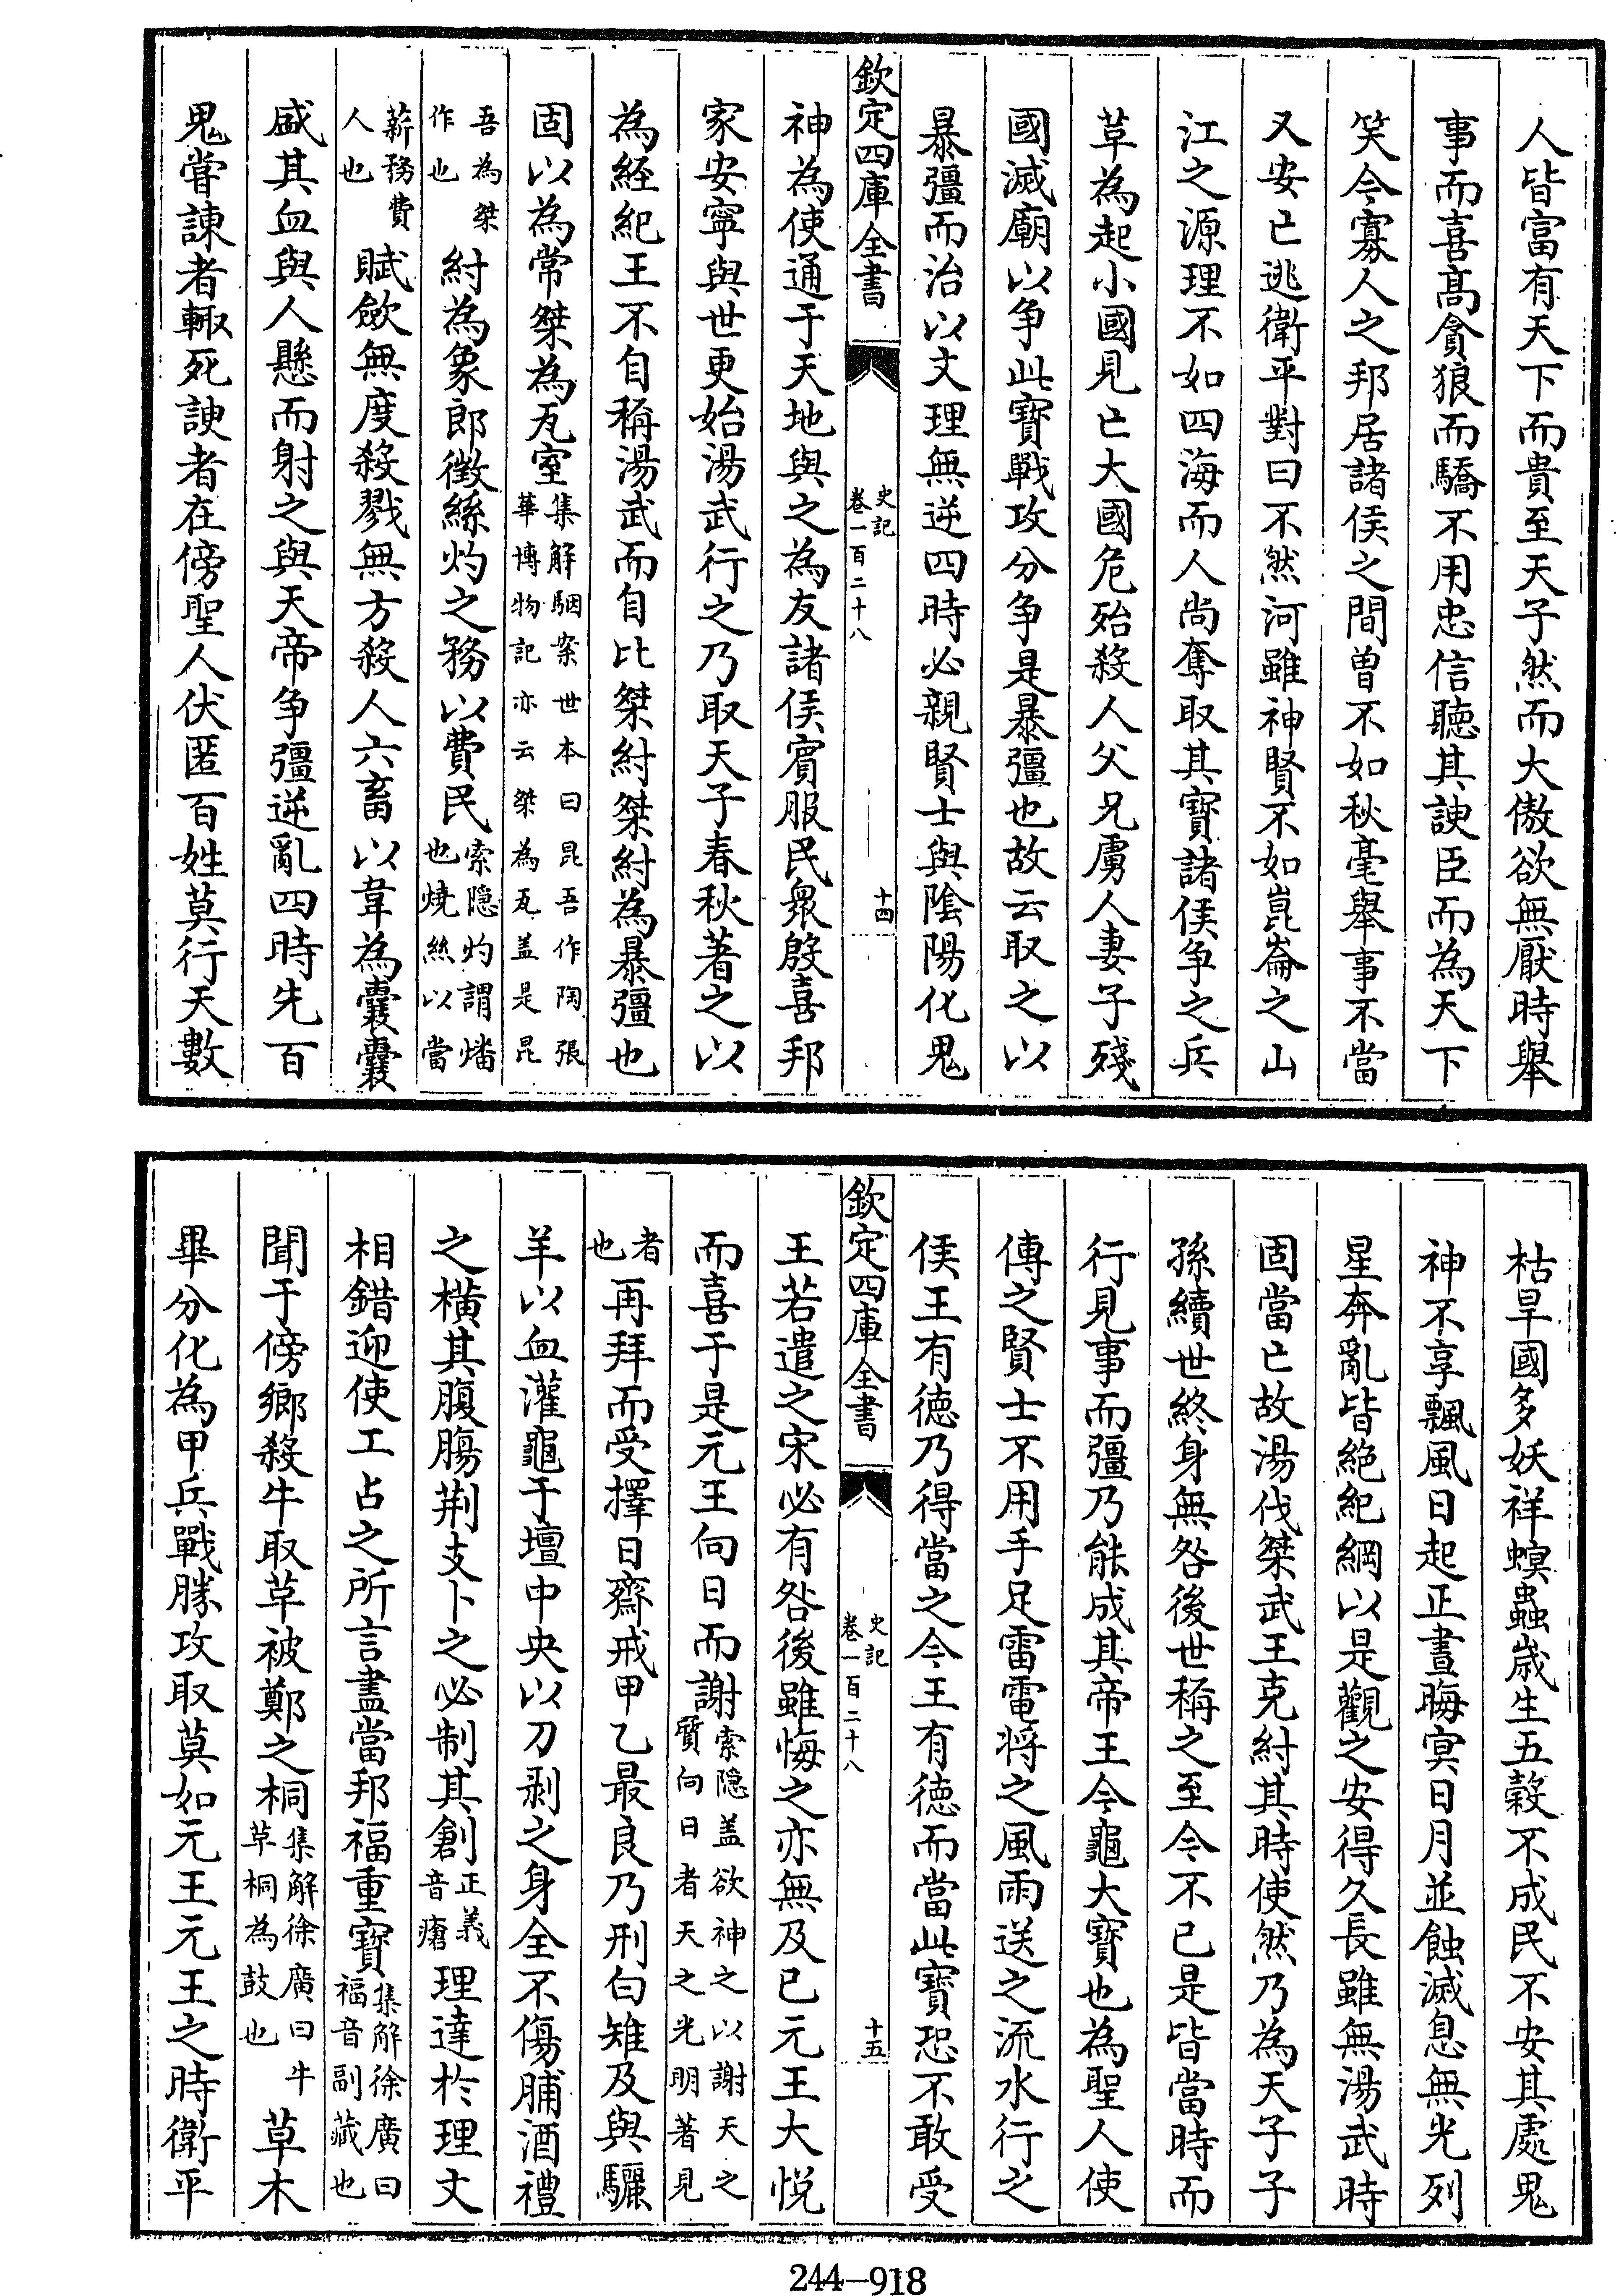 人皆富有天下而貴至天子然而大傲欲無厭時舉
事而喜髙貪狼而驕不用忠信聽其諛臣而為天下
笑今寡人之邦居諸侯之間曾不如秋毫舉事不當
又安亡逃衛平對曰不然河雖神賢不如崑崙之山
江之源理不如四海而人尚奪取其寶諸侯争之兵
革為起小國見亡大國危殆殺人父兄虜人妻子殘
國滅廟以争此寶戰攻分争是暴彊也故云取之以
暴彊而治以文理無逆四時必親賢士與陰陽化鬼
欽定四庫全書
史記
卷一百二十八
十四
神為使通于天地與之為友諸侯賓服民衆殷喜邦
家安寧與世更始湯武行之乃取天子春秋著之以
為經紀王不自稱湯武而自比桀紂桀紂為暴彊也
固以為常桀為瓦室集解駰案世本曰昆吾作陶張華博物記亦云桀為瓦盖是昆
吾為桀作也紂為象郎徴絲灼之務以費民索隱灼謂燔也燒絲以當
薪務費人也賦歛無度殺戮無方殺人六畜以韋為囊囊
盛其血與人懸而射之與天帝争彊逆亂四時先百
鬼嘗諫者輙死諛者在傍聖人伏匿百姓莫行天數
枯旱國多妖祥螟蟲歳生五穀不成民不安其處鬼
神不享飄風日起正晝晦冥日月並蝕滅息無光列
星奔亂皆絶紀綱以是觀之安得久長雖無湯武時
固當亡故湯伐桀武王克紂其時使然乃為天子子
孫續世終身無咎後世稱之至今不已是皆當時而
行見事而彊乃能成其帝王今龜大寶也為聖人使
傳之賢士不用手足雷電将之風雨送之流水行之
侯王有徳乃得當之今王有徳而當此寶恐不敢受
欽定四庫全書
史記
卷一百二十八
十五
王若遣之宋必有咎後雖悔之亦無及已元王大悅
而喜于是元王向日而謝索隱盖欲神之以謝天之質向日者天之光明著見
者也再拜而受擇日齋戒甲乙最良乃刑白雉及與驪
羊以血灌龜于壇中央以刀剥之身全不傷脯酒禮
之横其腹腸荆支卜之必制其創正義音瘡理達於理文
相錯迎使工占之所言盡當邦福重寶集解徐廣曰福音副藏也
聞于傍鄉殺牛取革被鄭之桐集解徐廣曰牛革桐為鼓也草木
畢分化為甲兵戰勝攻取莫如元王元王之時衛平
244—918